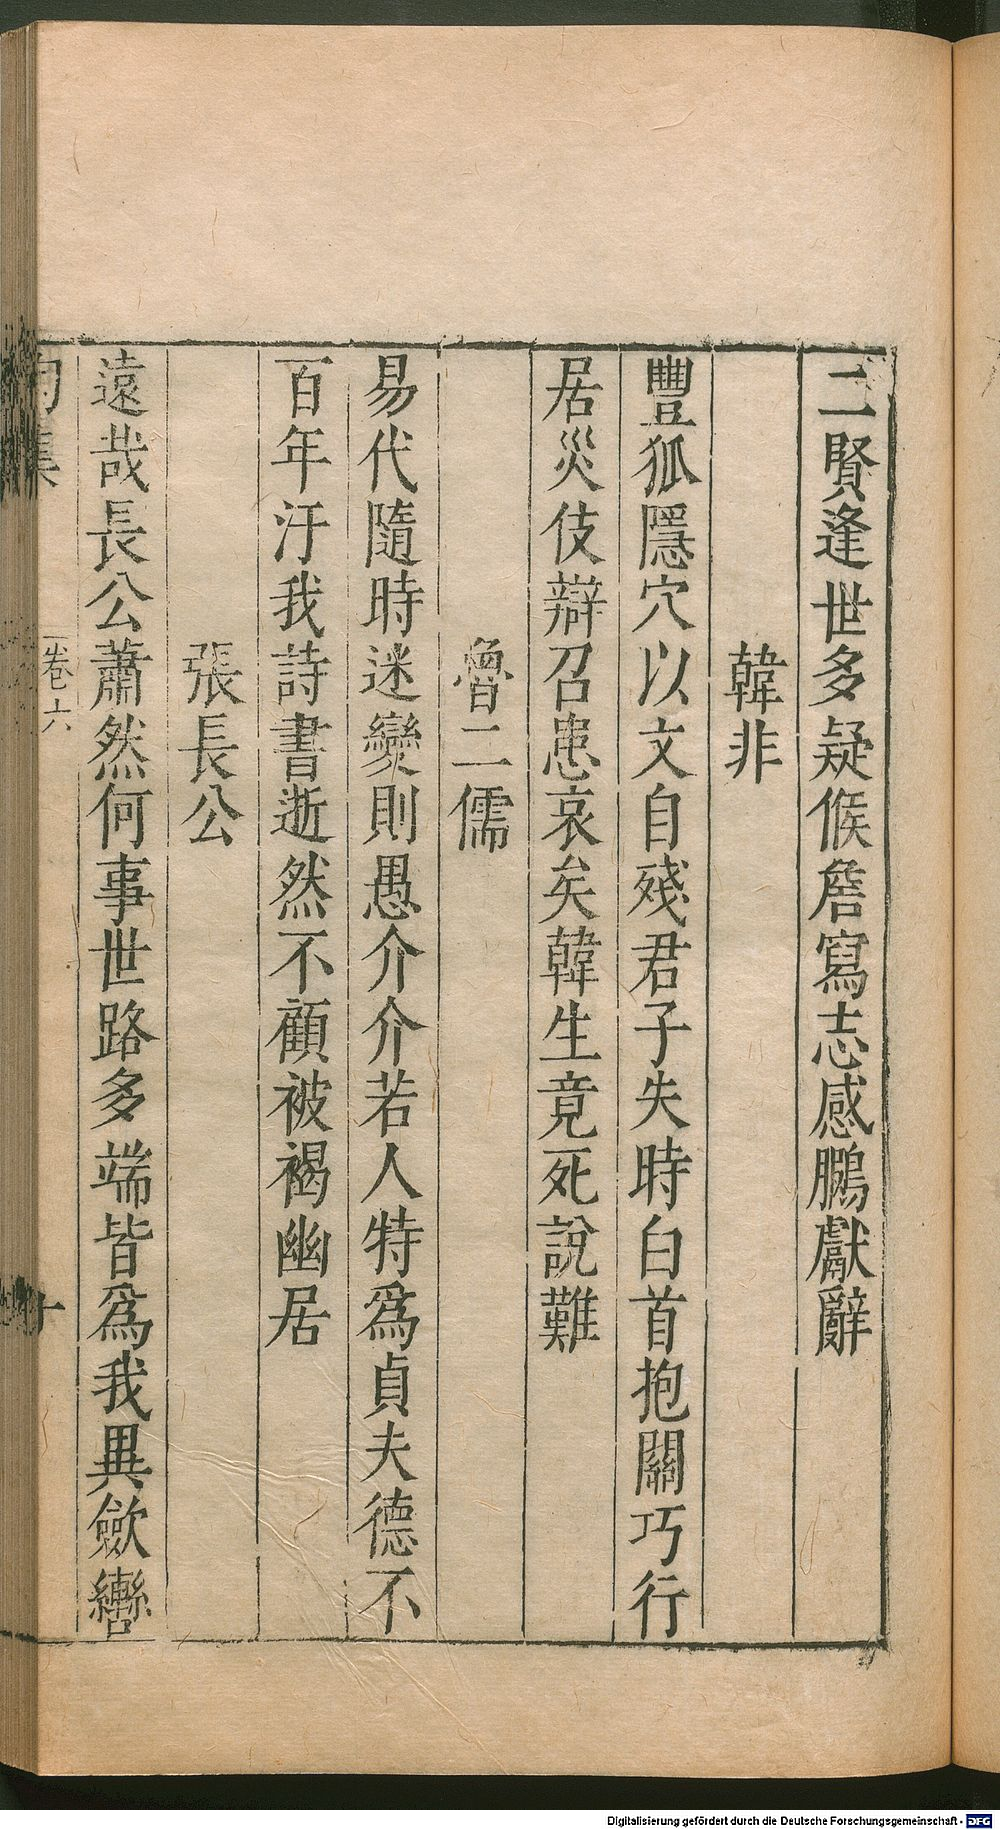 二賢逢世多疑候詹寫志感鵩獻辭
韓非
豐狐隱穴以文自殘君子失時白首抱關巧行
居災伎辯召患哀矣韓生竟死說難
魯二儒
易代隨時迷變則愚介介若人特爲貞夫德不
百年汙我詩書逝然不顧被褐幽居
張長公
遠哉長公蕭然何事世路多端皆爲我異斂轡
卷六
十
Digitalisierung gefördert durch die Deutsche Forschungsgemeinschaft - DFG